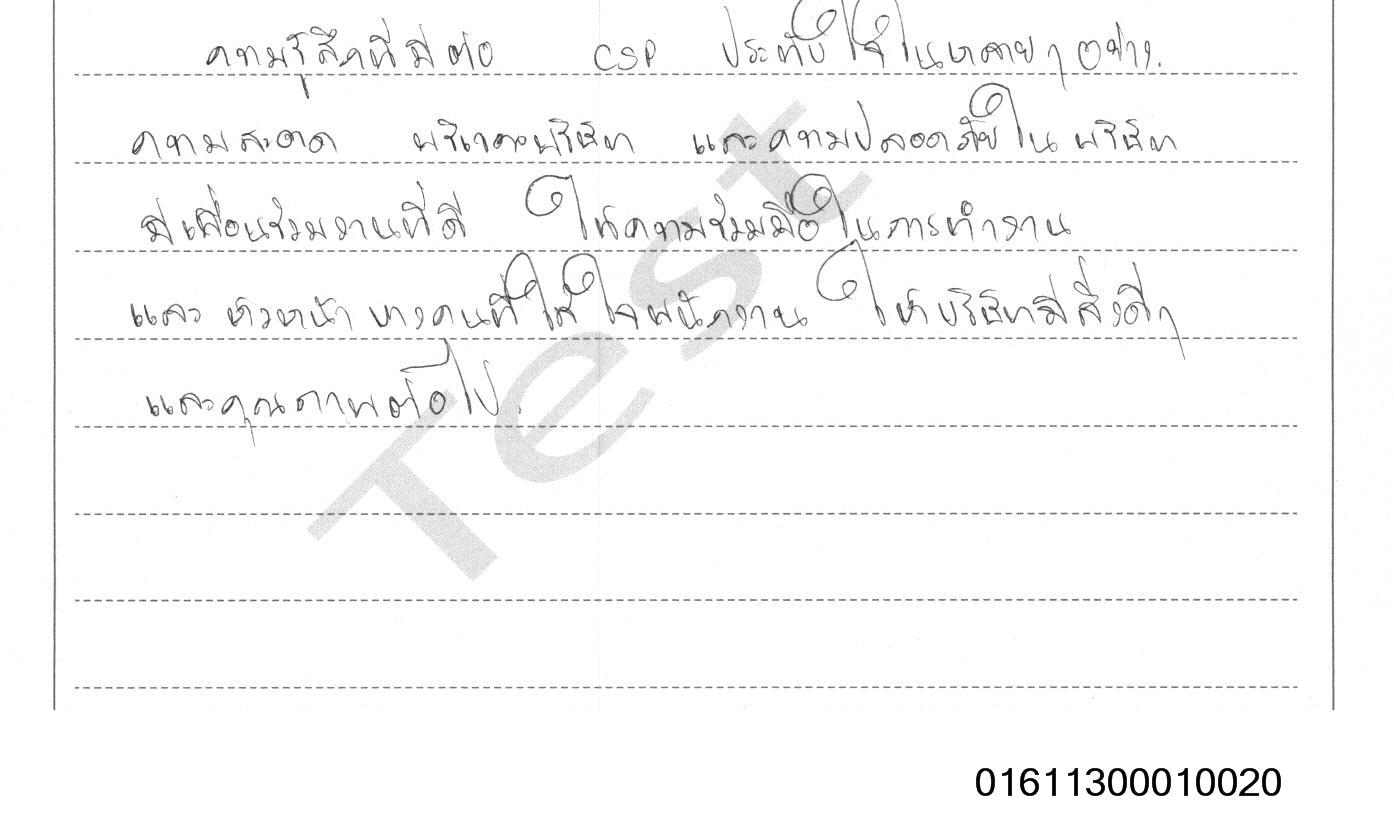 ความรู้สึกที่มีต่อ CSP ประทับใจในหลายๆอย่าง.
ความสะอาด บริเวณบริษัท และความปลอดภัยในบริษัท
มีเพื่อนร่วมงานที่ดี ให้ความร่วมมือในการทำงาน
และ หัวหน้า บางคนที่ใส่ใจพนักงาน ให้บริษัทมีสิ่งดีๆ
และคุณภาพต่อไป.
Test
01611300010020